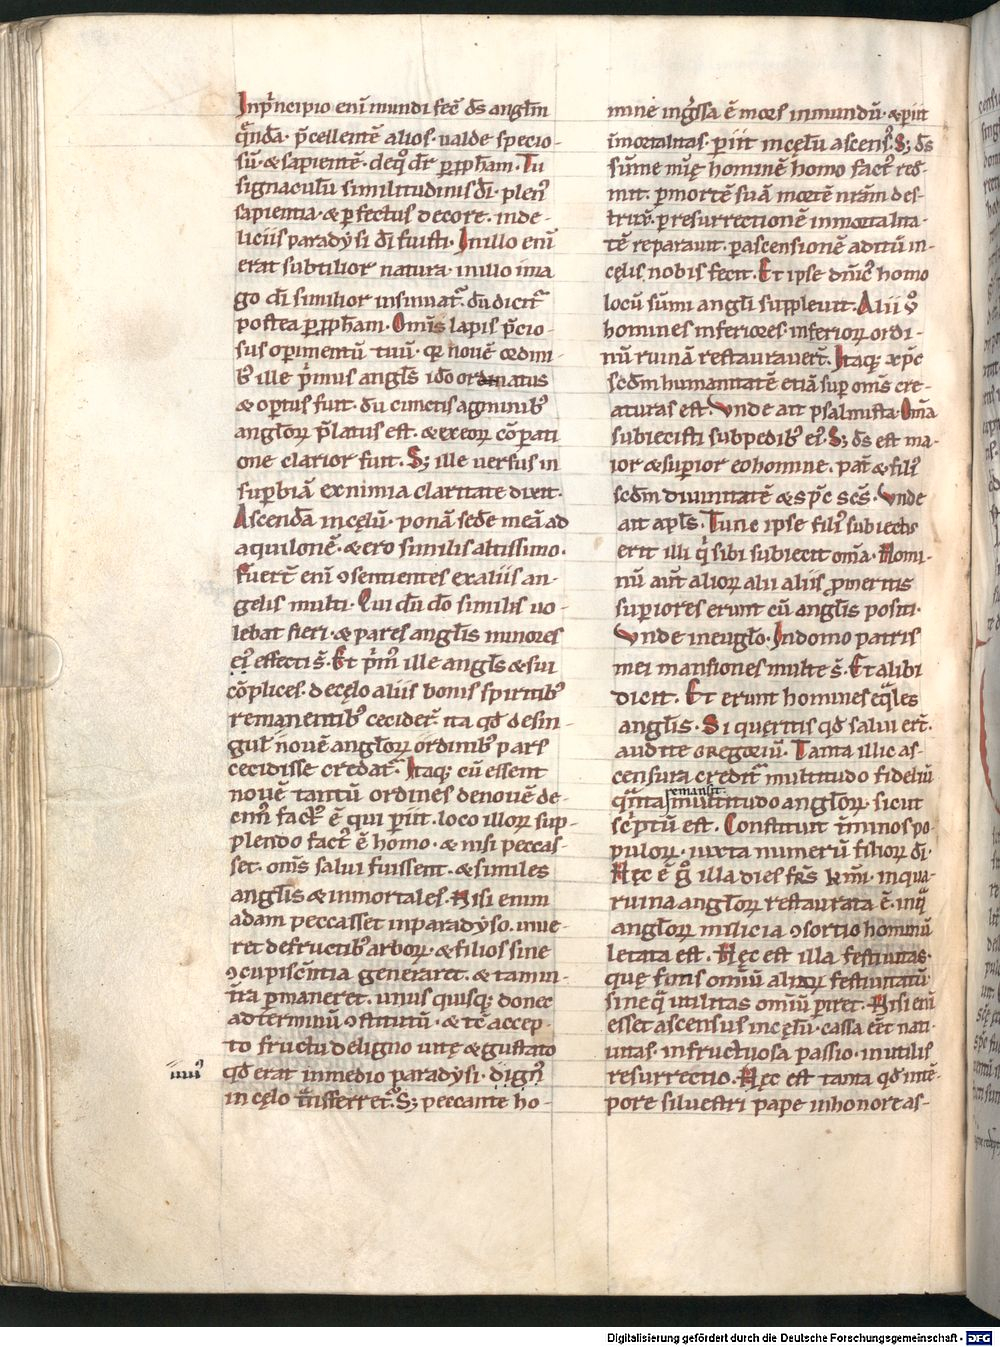 Inp͛ncipio enī mundi fec̄ d̄s angl̄m
q̄ndā. p̄cellentē alios. ualde specio-
sū. & sapientē. deq̊ dr̄ ꝑ ꝓph̄am. Tu
signaculū similitudinis dī. plen᷒
sapientia. & ꝑfectus decore. inde-
liciis paradẏsi dī fuisti. Inillo enī
erat subtilior natura. inillo ima
go dī similior insinuat᷑. dū dicit᷑
postea ꝑ ꝓph̄am. Om̄is lapis p̄cio-
sus operimentū tuū. qr̄ nouē ordini-
b᷒ ille p͛mus angl̄s idō ordinatus
& opertus fuit. dū cunctis agminib᷒
angl̄oꝝ p̄latus est. & exeoꝝ cōparati
one clarior fuit. S; ille uersus in
suꝑbiā ex nimia claritate dixit.
Ascendā incęlū. ponā sedē meā ad
aquilonē. & ero similis altissimo.
Fuert̄ enī ꝯsentientes ex aliis an-
gelis multi. Qui dū dō similis uo-
lebat fieri. & pares angl̄is minores
ei᷒ effecti s̄. Et p͛m᷒ ille angl̄s & sui
cōplices. decęlo aliis bonis spiritib᷒
remanentib᷒ cecider̄. ita qđ desin-
gul̄ nouē angl̄oꝝ ordinib᷒ pars
cecidisse credat᷑. Itaq; cū essent
nouē tantū ordines denouē de-
cim᷒ fact᷒ ē qui ꝑiit. loco illoꝝ sup-
plendo fact᷒ ē homo. & nisi peccas-
set. om̄s salui fuissent. & similes
angl̄is & inmortales. Nisi enim
adam peccasset inparadẏso. uiue-
ret defructib᷒ arboꝝ. & filios sine
ꝯcupiscen̄tia generaret. & tamin-
t̄ra ꝑmaneret. unus quisq; donec
adterminū ꝯstitutū. & tc̄ accep-
to fructu deligno uitę & gustato
qđ erat inmedio paradẏsi. dign᷒
incęlo t̄nsferret᷑. S; peccante ho-
iiii᷒
mine ing͛ssa ē mors inmundū. & ꝑiit
īmortalitas. ꝑiit incęlū ascens᷒. S; d̄s
hominē homo fact᷒ red-
mit. ꝑmortē suā mortē nr̄am des-
trux̄. ꝑresurrectionē inmortalita-
tē reparauit. ꝑascensionē aditū in-
cęlis nobis fecit. Et ipse dn̄ic᷒ homo
locū sūmi angl̄i suppleuit. Alii ů
homines inferiores. inferioꝝ ordi-
nū ruinā restaurauer̄t. Itaq; xp̄c
scđm humanitatē etiā suꝑ om̄s cre-
aturas est. Vnde ait psalmista. Om̄a
subiecisti subpedib᷒ ei᷒. S; d̄s est ma-
ior & superior eo homine. pat̄ & fili᷒
scđm diuinitatē & sp̄c sc̄s. Vnde
ait apl̄s. Tunc ipse fili᷒ subiect᷒
erit illi q͛ sibi subiecit om̄a. Homi-
nū aut̄ alioꝝ alii aliis ꝓmeritis
suꝑiores erunt cū angl̄is positi.
Vnde ineugl̄o. Indomo patris
mei mansiones multe s̄. Et alibi
dicit. Et erunt homines eq̄les
angl̄is. Si queritis qđ salui ert̄.
audite gregoriū. Tanta illic as-
censura credit᷑ multitudo fideliū
q̄nta remansit multitudo angl̄oꝝ. sicut
sc͛ptū est. Constituit t̄minos po-
puloꝝ. iuxta numerū filioꝝ dī.
Hęc ē g͛ illa dies fr̄s kr̄mi. inqua
ruina angl̄oꝝ restaurata ē. inq̄
angl̄oꝝ milicia ꝯsortio hominū
letata est. Hęc est illa festiuitas.
quę finis om̄iū alioꝝ festiuitatū.
sineq̄ utilitas om̄iū ꝑiret. Nisi enī
esset ascensus incęlū. cassa eēt nati-
uitas. infructuosa passio. inutilis
resurrectio. Hęc est tanta qđ intē-
pore siluestri pape inhonore as-
Digitalisierung gefördert durch die Deutsche Forschungsgemeinschaft - DFG